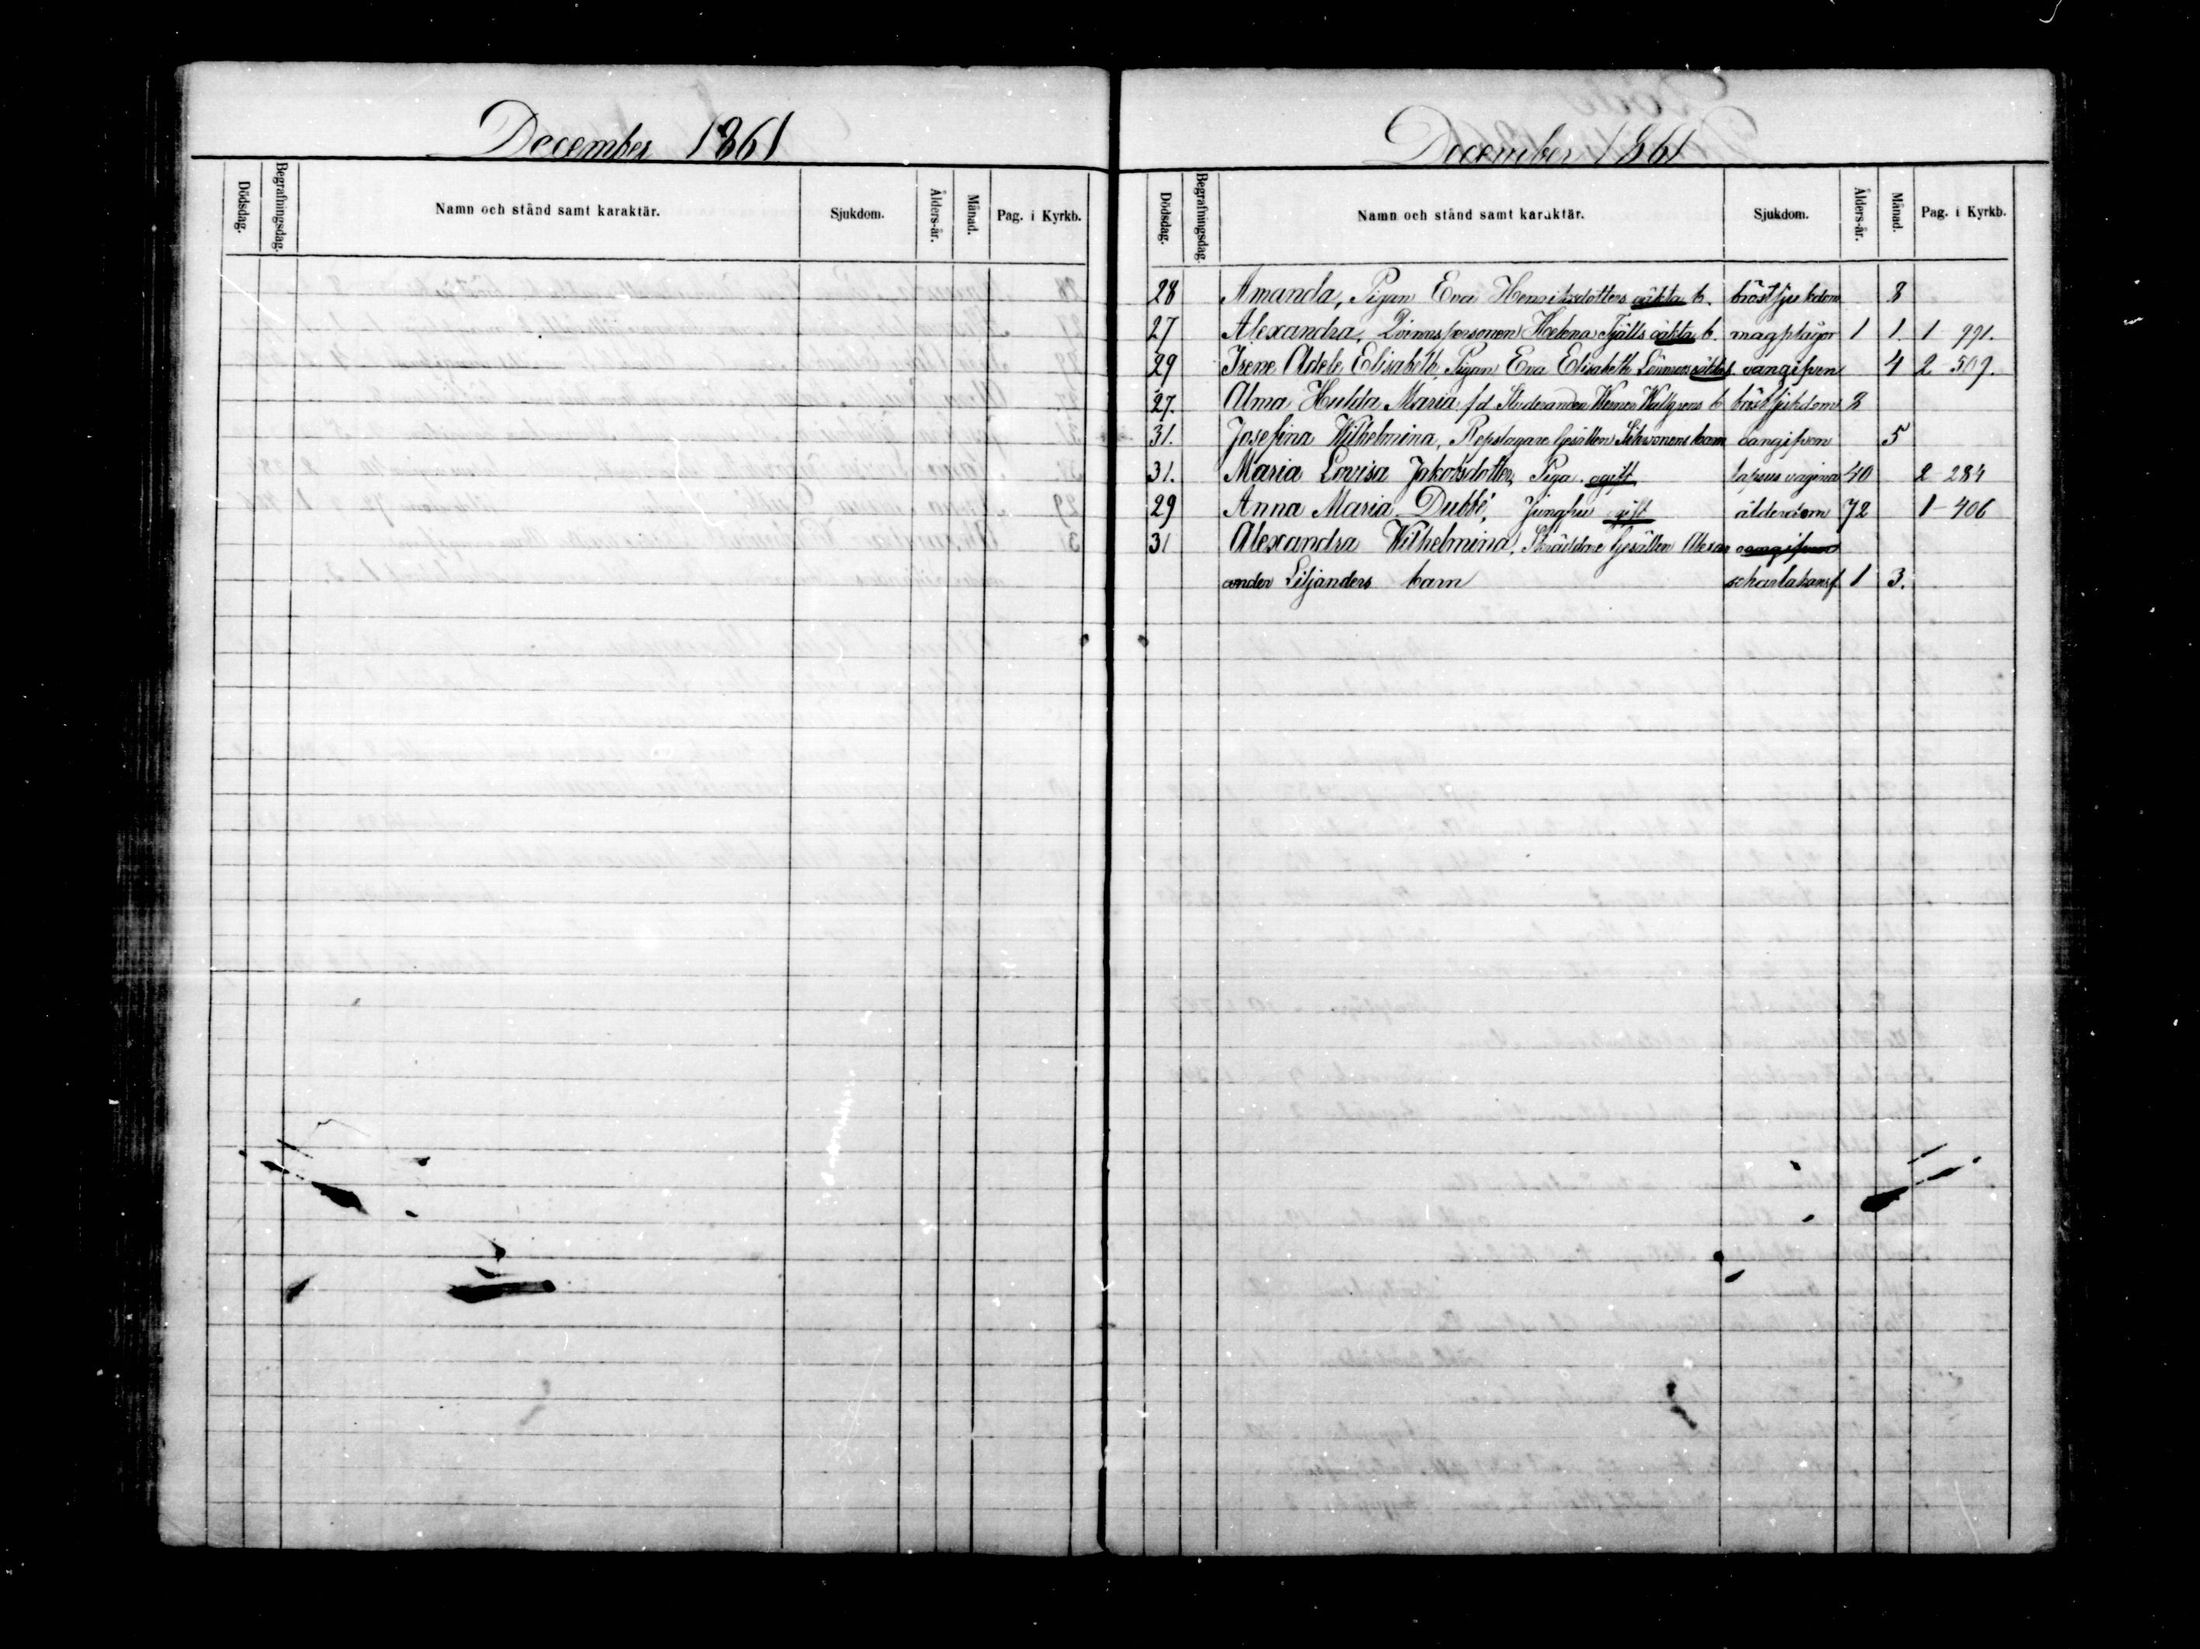 December 1861
Dödsdag. Begrafningsdag. Namn och stånd samt karaktär. Sjukdom. Ålders-år. Månad. Pag. i Kyrkb.
December 1861
Dödsdag. Begrafningsdag. Namn och stånd samt karaktär. Sjukdom. Ålders-år. Månad. Pag. i Kyrkb.
28 Amanda, Pigan Eva Henriksdotters oäkta b. bröstsjukdom 8
27 Alexandra, Qvinnspersonen Helena Fjälls oäkta b. magplågor 1 1. 1-991.
29 Irene Adele Elisabeth, Pigan Eva Elisabeth oangifven 4 2-509.
27. Alma Hulda Maria fd Studeranden Werner Wallgrens b bröstsjukdom 2
31. Josefina Wilhelmina, Repslagare Gesällen barn oangifven 5
31. Maria Lovisa Jakobsdotter, Piga. ogift lapsus vagina 40 2-284
29 Anna Maria Dubbé, Jungfru gift ålderdom 72 1-406
31 Alexandra Wilhelmina, Skräddare Gesällen Alexan oangifven
ander Liljanders barn scharlakansf. 1 3.